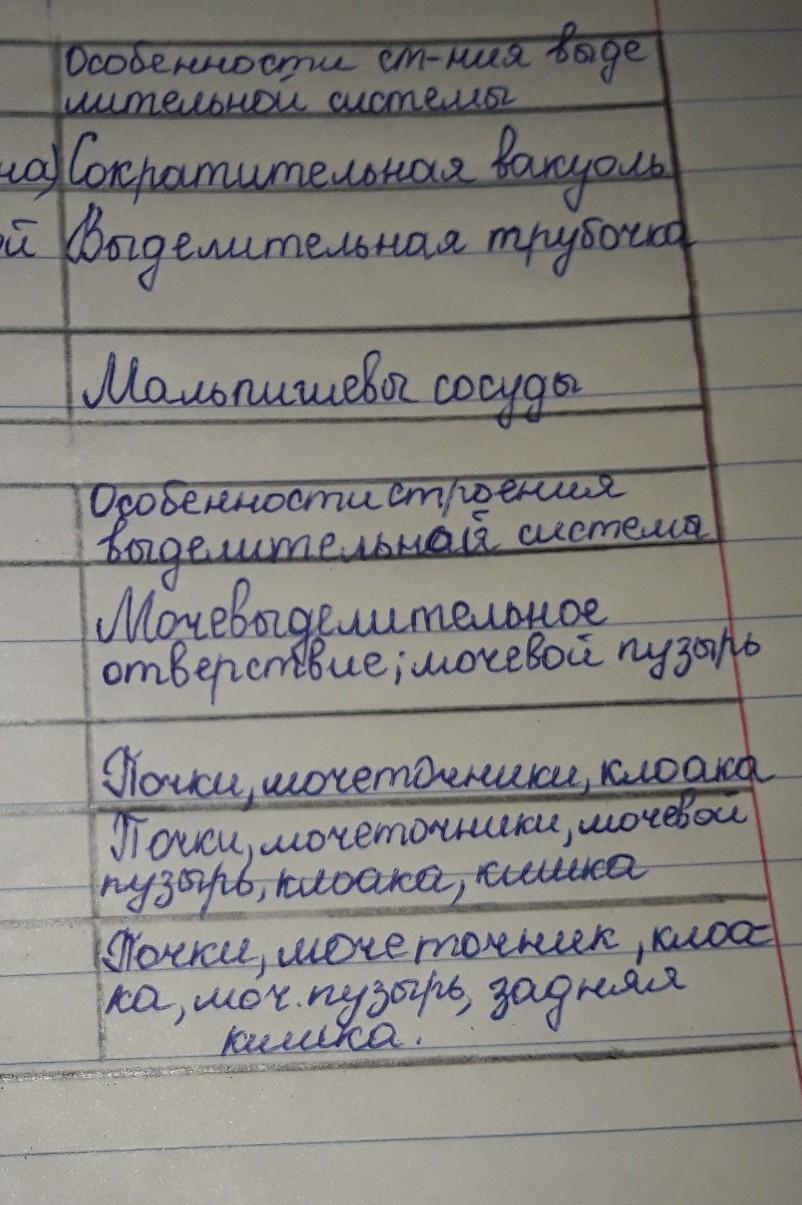 Особенности ст-ния выде
лительной системы
на) Сократительная вакуоль
ой Выделительная трубочка
Мальпигиевы сосуды
Особенности строения
выделительной система
Мочевыделительное
отверствие; мочевой пузырь
Почки, мочеточники, клоака
Почки, мочеточники, мочевой
пузырь, клоака, кишка
Почки, мочеточник, клоа-
ка, моч. пузырь, задняя
кишка.